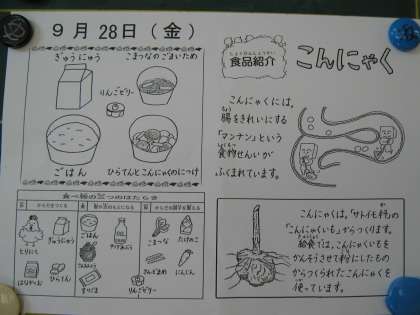 9月28日(金)
ぎゅうにゅう
こまつなのごまいため
りんごゼリー
ごはん
ひらてんとこんにゃくのにつけ
食べ物の三つのはたらき
とりにく
ぎゅうにゅう
ひらてん
ごはん
こまつな
たけのこ
にんじん
りんごゼリー
しょくひんしょうかい
食品紹介
こんにゃく
こんにゃくには、
ちょう
腸をきれいにする
「マンナン」という
しょくもつ
食物せんいが
ふくまれています。
こんにゃくは、「サトイモ科」の
「こんにゃくいも」からつくります。
きゅうしょく
給食では、こんにゃくいもを
かんそうさせて粉にしたもの
からつくられたこんにゃくを
使っています。